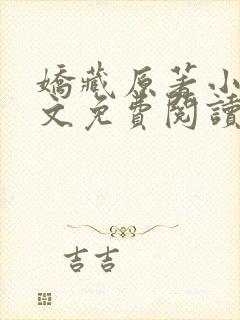 嬌藏原著小
文免費閱讀
吉吉